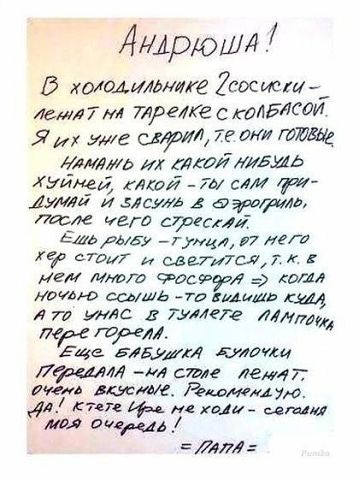 Андрюша!
В холодильнике 2 сосиски –
лежат на тарелке с колбасой.
Я их уже сварил, т.е. они готовые.
Намажь их какой нибудь
хуйнёй, какой – ты сам при-
думай и засунь в аэрогриль,
после чего стрескай.
Ешь рыбу – тунца, от него
хер стоит и светится, т.к. в
нём много фосфора => когда
ночью ссышь – то видишь куда,
а то у нас в туалете лампочка
перегорела.
Еще бабушка булочки
передала – на столе лежат.
очень вкусные. Рекомендую.
Да! К тёте Ире не ходи – сегодня
моя очередь!
= Папа =
Pumba